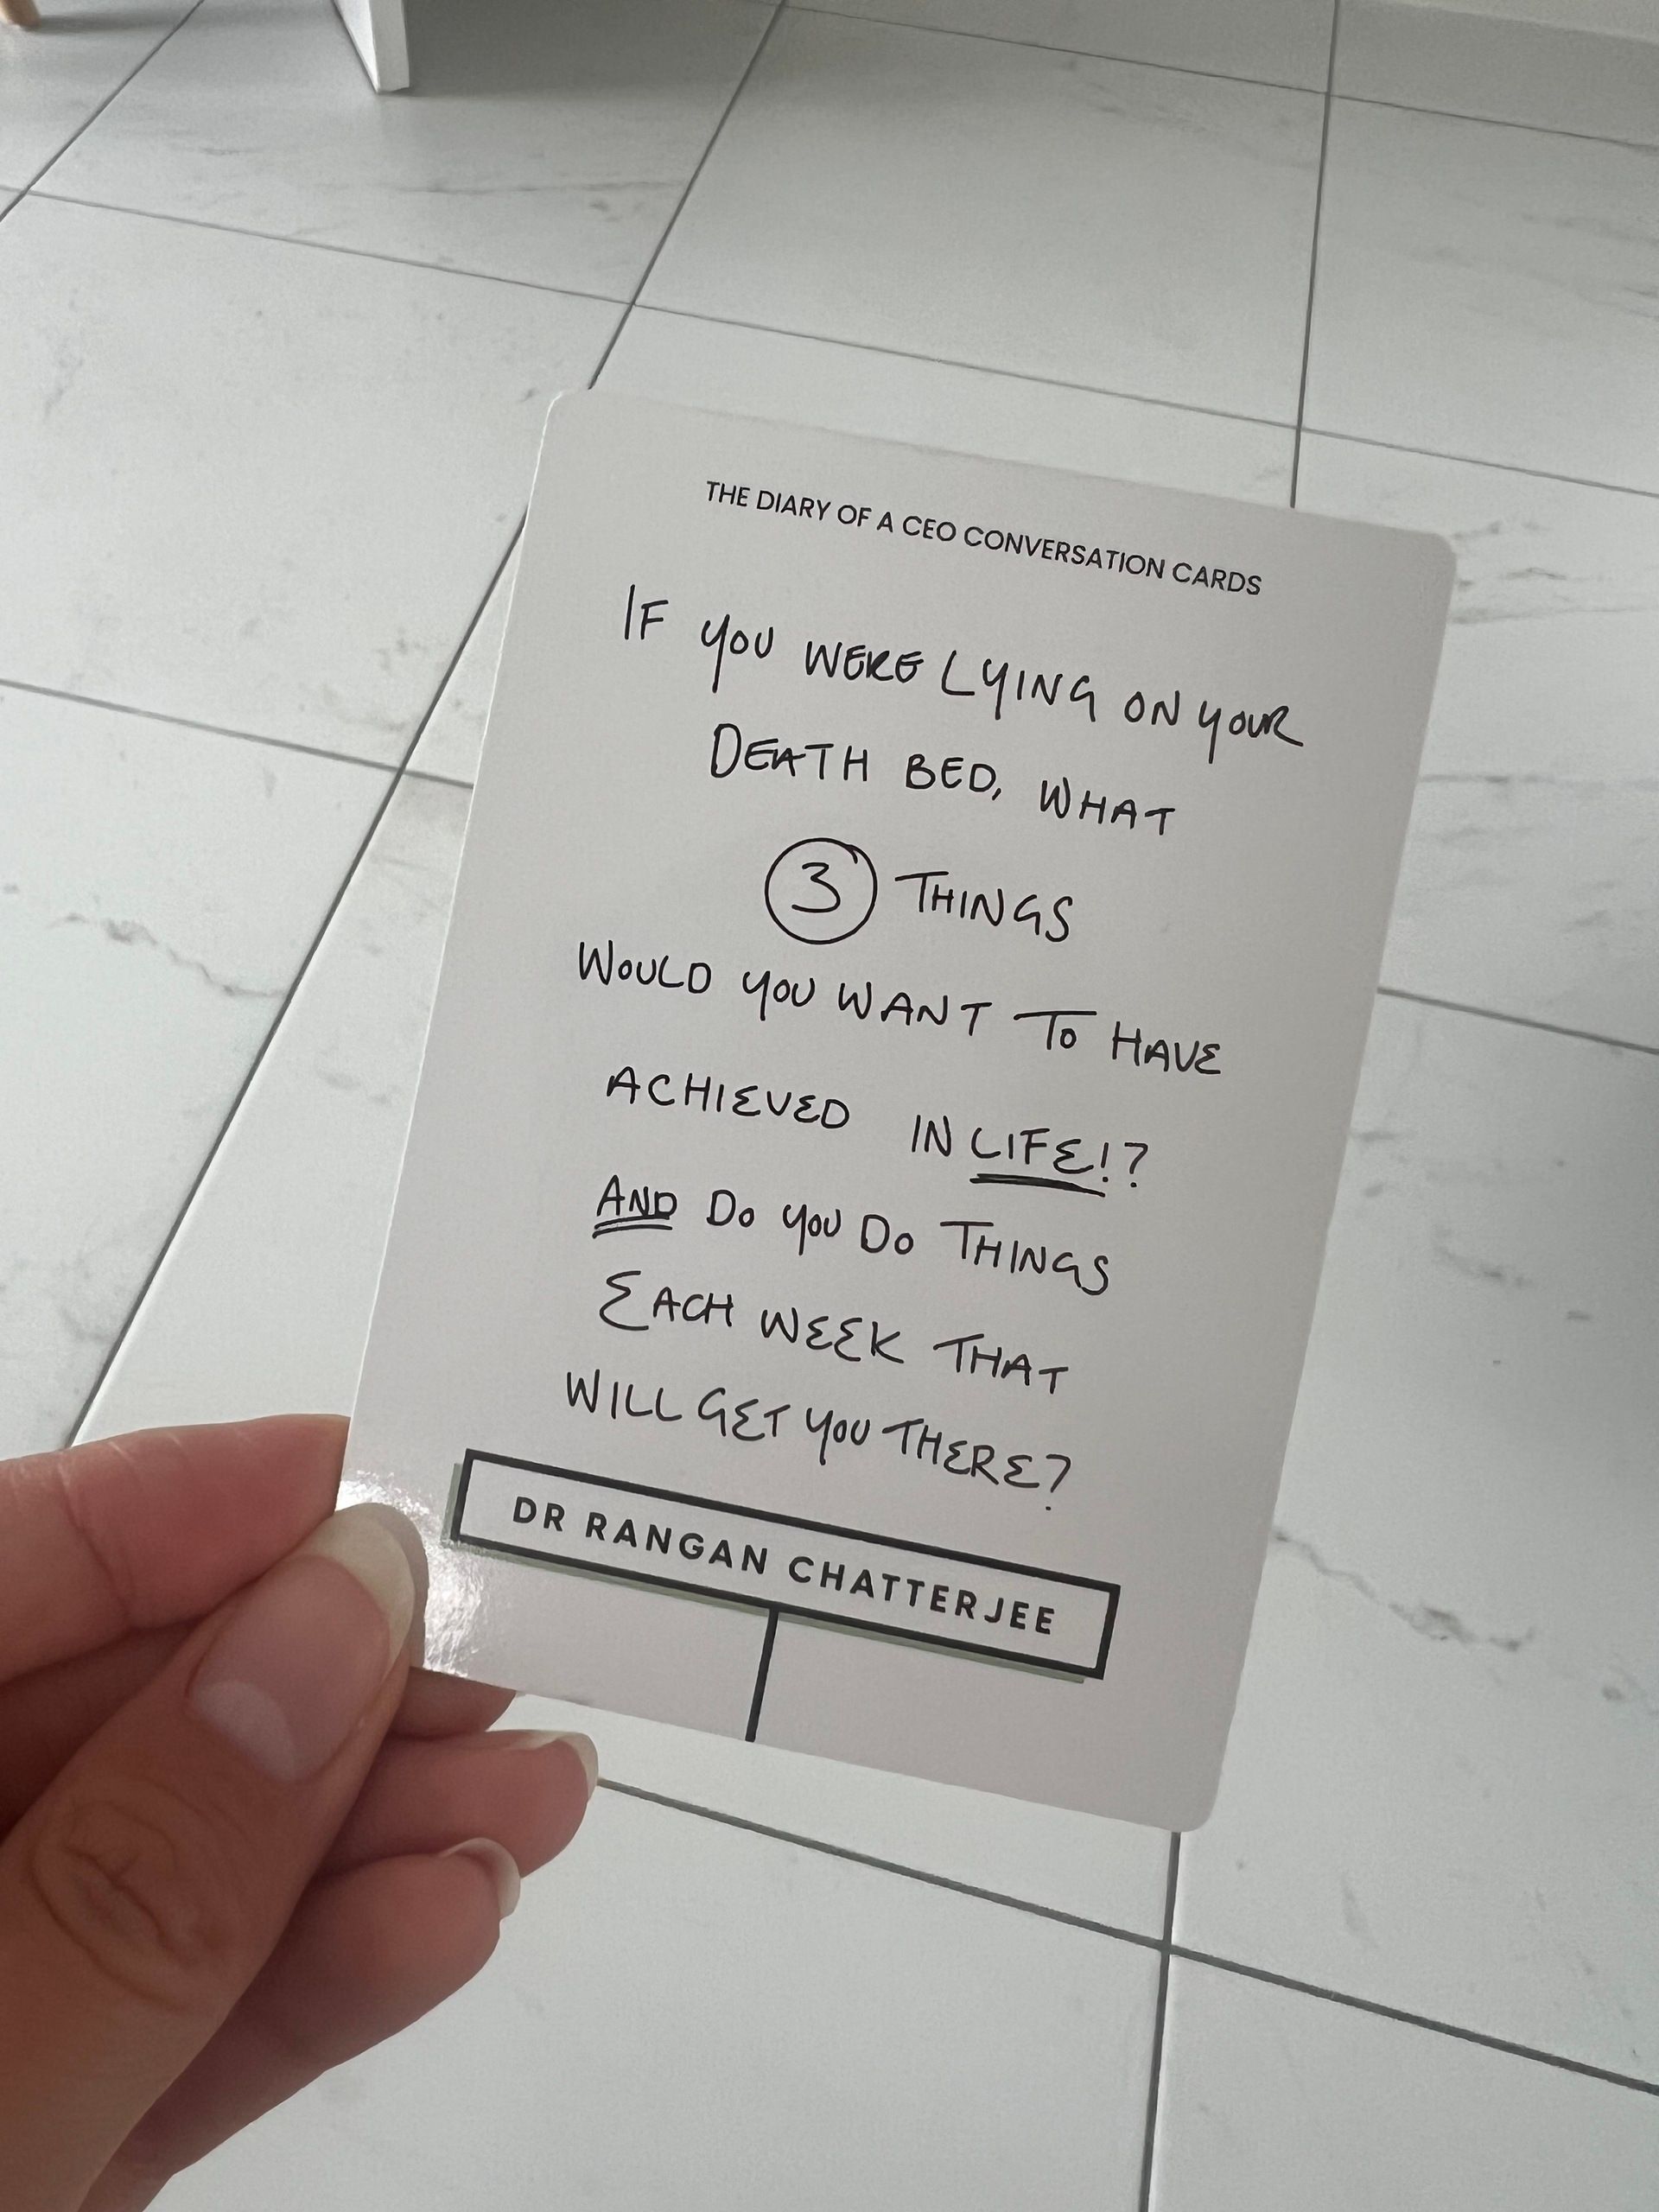 THE DIARY OF A CEO CONVERSATION CARDS
IF YOU WERE LYING ON YOUR
DEATH BED, WHAT
3 THINGS
WOULD YOU WANT TO HAVE
ACHIEVED IN LIFE!?
AND DO YOU DO THINGS
EACH WEEK THAT
WILL GET YOU THERE?
DR RANGAN CHATTERJEE